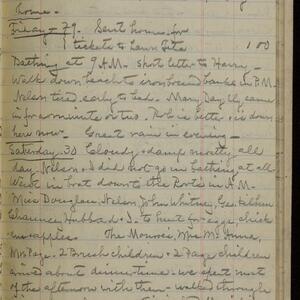 home.
Friday - 29. Sent home for
tickets to Lawn Fete 1 00
Bathing at 9 A.M. Short letter to Harry -
Walk down beach to iron bound banks in P.M.
Nelson tired early to bed. Mary Day came
in for a minute or two. Rob is better is down
here now. Great rain in evening -
Saturday 30 Cloudy & damp mostly all
day. Nelson & I did not go in bathing at all
Went in boat down to the Roots in A.M.
Miss Douglass, Nelson, John Whitney, Geo.
Chauncey Hubbard & I - to hunt for eggs, chick-
ens apples. The Misses, Mrs
Mrs Page. 2 children 2 Page children
arrive about dinner time. We spent most
of the afternoon with them - walked through